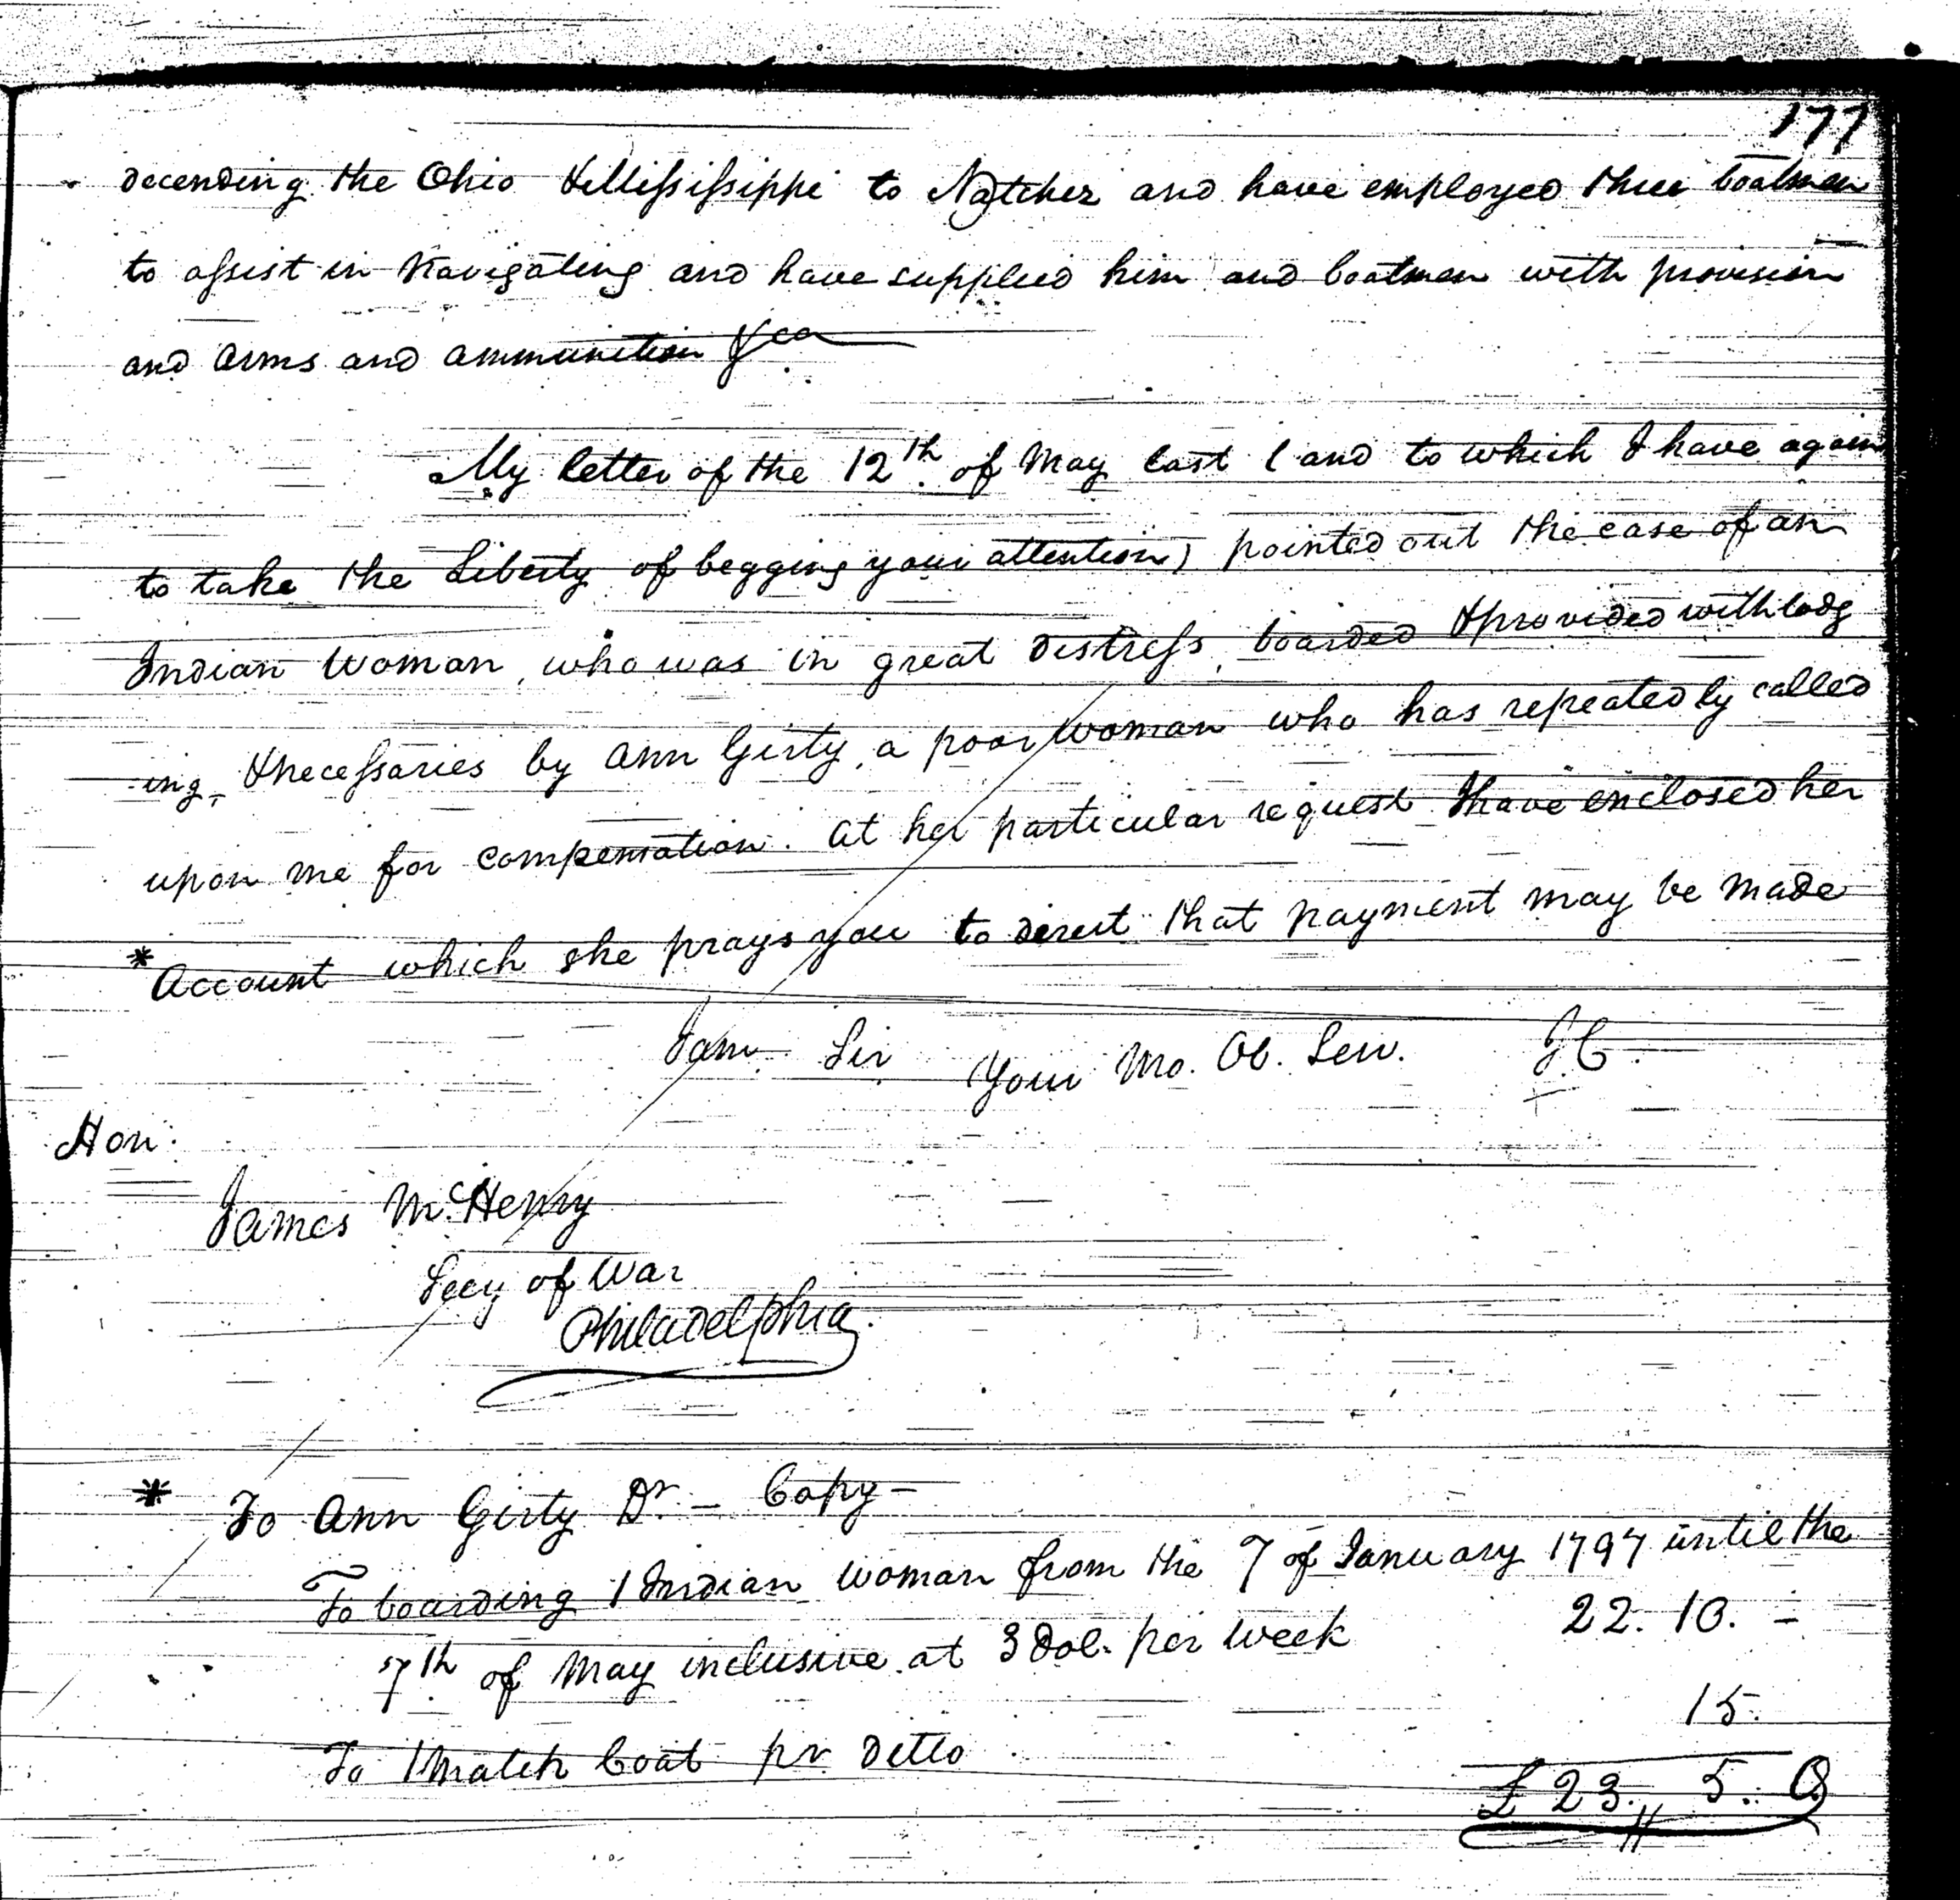 177
decending the Ohio & Missisippi to Natchez and have employed three boatmen
to assist in Navigating and have supplied him and boatmen with provision
and arms and ammunition &ca
My letter of the 12th. of May last (and to which I have again
to take the Liberty of begging your attention) pointed out the case of an
Indian Woman, who was in great distress, boarded & provided with lodg
-ing, & necessaries by Ann Girty, a poor woman who has repeatedly called
upon me for compensation. At her particular request I have enclosed her
*Account which she prays you to direct that payment may be made
I am Sir Your Mo. Ob. Serv. J.C.
Hon:
James McHenry
Secy of War
Philadelphia.
* To Ann Girty Dr. – Copy –
To boarding 1 Indian woman from the 7 of January 1797 until the
7th of May inclusive at 3 Dol. per week 22. 10. –
To 1 match Coat pr. Ditto 15.
£ 23. 5. 0